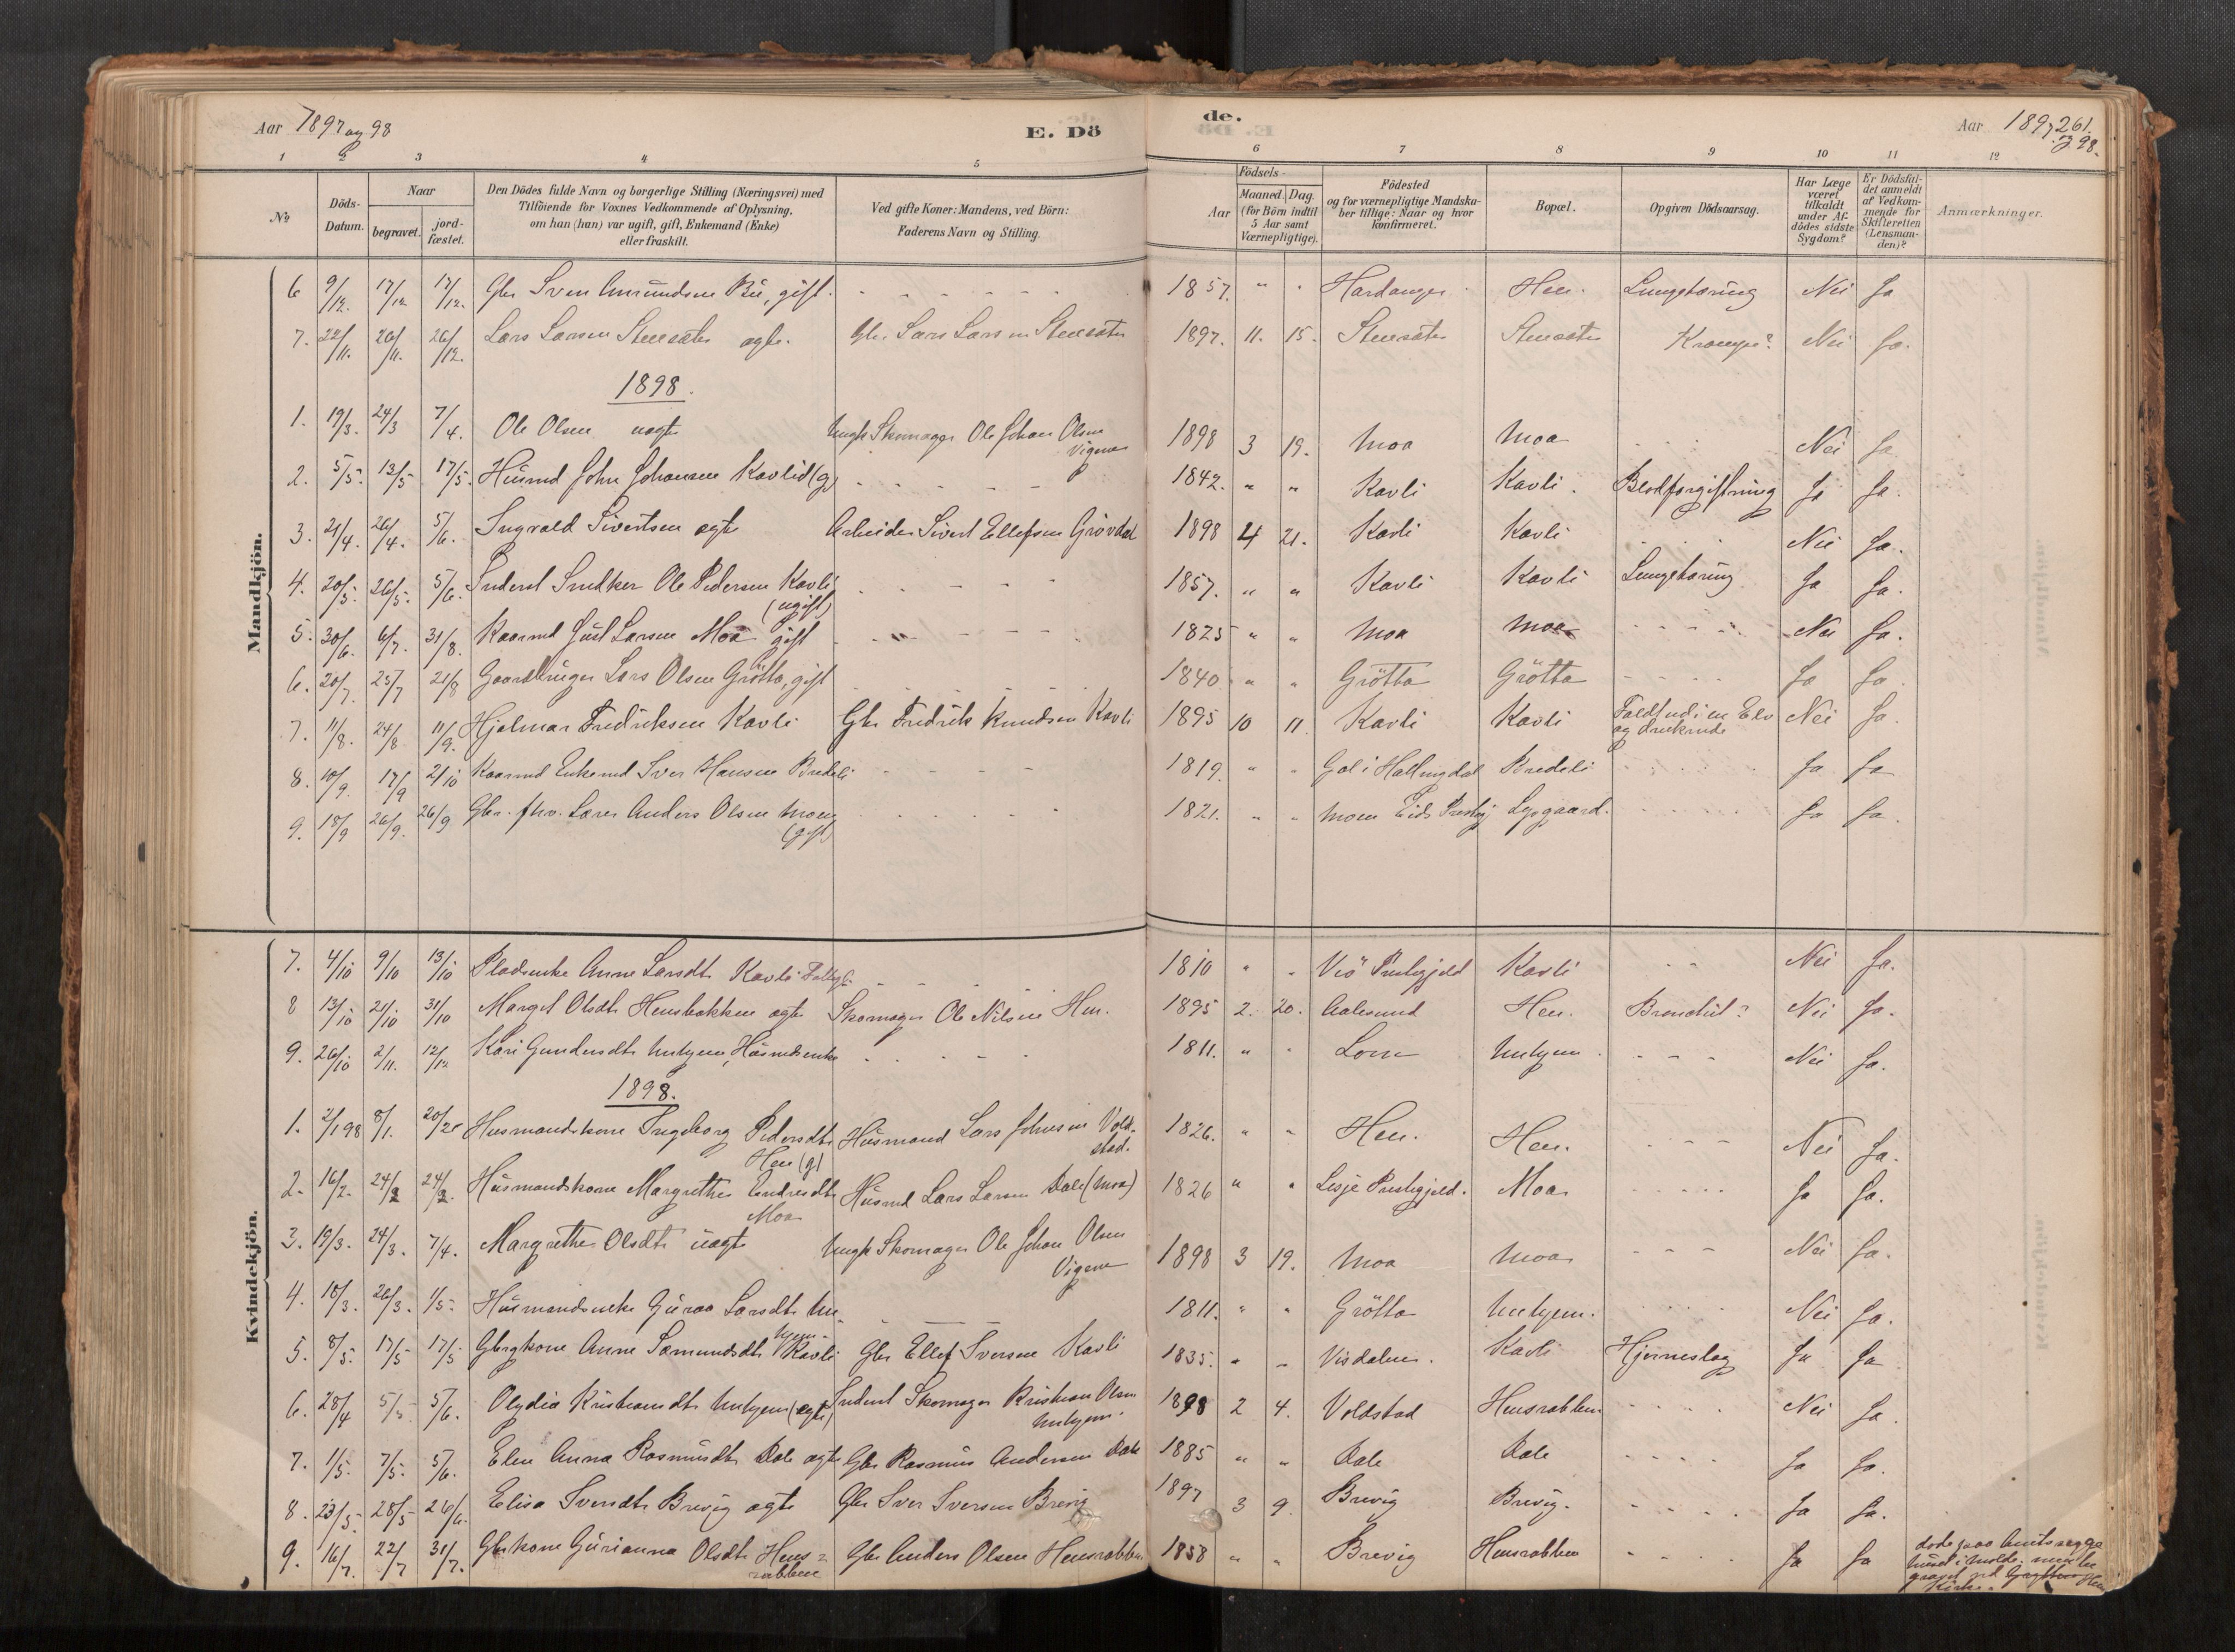 Aar 1897 og 98
E. Dö
de.
Aar 1897 og 98.
261.
1 2 3 4 5 6 7 8 9 10 11 12
No
Döds-Datum.
Naar
begravet.
jord-fæstet.
Den Dödes fulde Navn og borgerlige Stilling (Næringsvei) med
Tilföiende for Voxnes Vedkommende af Oplysning,
om han (hun) var ugift, gift, Enkemand (Enke)
eller fraskilt.
Ved gifte Koner: Mandens, ved Börn:
Faderens Navn og Stilling.
Födsels-
Aar
Maaned. Dag.
(for Börn indtil
5 Aar samt
Værnepligtige).
Födested
og for værnepligtige Mandska-
ber tillige: Naar og hvor
konfirmeret.
Bopæl.
Opgiven Dödsaarsag.
Har Læge
været
tilkaldt
under Af-
dödes sidste
Sygdom?
Er Dödsfal-
det anmeldt
af Vedkom-
mende for
Skifteretten
(Lensman-
den)?
Anmærkninger.
Mandkjön.
6 9/12. 17/12 17/12. Gbr Sven Amundsen Bu, gift. 1857. " " Hardanger Hen. Lungetæring Nei Ja
7. 22/11. 26/11. 26/12. Lars Larsen Stensæter ægte. Gbr Lars Larsen Stensæter 1897. 11. 15. Stensæter Stensæter Krampe? Nei Ja.
1898.
1. 19/3. 24/3 7/4. Ole Olsen uægte Ungk Skomager Ole Johan Olsen Vigen 1898 3 19. Moa Moa Nei Ja
2. 5/5. 13/5 17/5. Husmd John Johansen Kavlid (g) 1842. " " Kavli Kavli. Blodforgiftning Ja Ja.
3. 21/4. 26/4. 5/6. Ingvald Sivertsen ægte Arbeider Sivert Ellefsen Grövdal 1898 4 21. Kavli Kavli Nei Ja.
4. 20/5. 26/5. 5/6. Inderst Snedker Ole Pedersen Kavli (ugift) 1857. " " Kavli Kavli Lungetæring Ja Ja.
5. 30/6. 6/7. 31/8. Kaarmd Just Larsen Moa gift 1825 " " Moa Moa Nei Ja.
6. 20/7. 25/7 21/8 Gaardbruger Lars Olsen Grötta, gift 1840 " " Grötta Grötta Ja Ja.
7. 11/8. 24/8 11/9. Hjalmar Fredriksen Kavli Gbr Fredrik Knudsen Kavli 1895 10 11 Kavli Kavli Faldt ud i en Elv og druknede Nei Ja.
8. 10/9. 17/9 2/10 Kaarmd Enkemd Iver Hansen Bredeli 1819. " " Gol i Hallingdal Bredeli Ja Ja
9. 18/9 26/9. 26/9 Gbr. fhv. Lærer Anders Olsen Moen (gift) 1821. " " Moen Eids Prestgj Lysgaard. Ja Ja.
Kvindekjön.
7. 4/10 9/10 13/10 Pladsenke Anne Larsdt. Kavli 1810 " " Veö Prestegjeld Kavli Nei Ja.
8 13/10 21/10 31/10 Marget Olsdt. Hensbakken ægte Skomager Ole Nilsen Hen. 1895 2. 20. Aalesund Hen. Bronchit? Nei Ja.
9. 26/10 2/11. 12/12 Kari Gundersdt. Unhjem, Husmdsenke 1811. " " Lom Unhjem Nei Ja.
1898.
1. 2/1 98 8/1. Husmandskone Ingeborg Pedersdt. Hen (g) Husmand Lars Johnsen Voldstad. 1826. " " Hen. Hen. Nei Ja.
2. 16/2. 24/2 24/2. Husmandskone Margrethe Endresdt. Moa Husmd Lars Larsen Dale (Moa) 1826 " " Lesje Prestegjeld. Moa Ja Ja.
3. 19/3. 24/3. 7/4. Margrethe Olsdt. uægte Ungk Skomager Ole Johan Olsen Vigen 1898 3 19. Moa Moa Nei Ja.
4. 18/3. 26/3. 1/5. Husmandsenke Guroo Larsdt. Unhjem. 1811. " " Grötta Unhjem. Nei Ja.
5. 8/5. 17/5 17/5 Gbrgkone Anne Samundsdt. Kavli Gbr Ellef Iversen Kavli 1835. " " Visdalen. Kavli Hjerneslag Ja Ja
6. 28/4 5/5 5/6. Olydia Kristiansdt. Unhjem (ægte) Inderst Skomager Kristian Olsen Unhjem. 1898 2 4. Voldstad Hensrabben Nei Ja.
7. 1/5. 7/5. 5/6. Elen Anna Rasmusdt. Dale ægte Gbr Rasmus Andersen Dale 1885 " " Dale Dale Ja Ja.
8. 23/5. 28/5 26/6. Elisa Iversdt. Brevig ægte Gbr Iver Iversen Brevig 1897 3 9. Brevig Brevig. Ja Ja.
9. 16/7. 22/7 31/7. Gbrkone Gurianna Olsdt. Hensrabben Gbr Anders Olsen Hensrabben 1858 " " Brevig Hensrabben Ja Ja döde paa Amtssygehuset i Molde. men be gravet ved Hen Kirke.